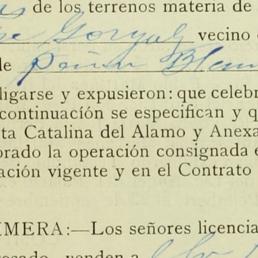 de los terrenos materia de
Gonzalez vecino
de Peñon Blanc
ligarse y expusieron: que celebr
continuación se especifican y q
ta Catalina del Alamo y Anexa
orado la operación consignada e
ación vigente y en el Contrato
IMERA:—Los señores licencia
venden a